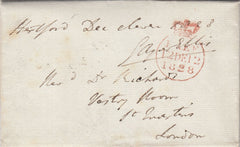 Hertford Dec eleven 1828
12 DE 12
1828
Revd Dr Richards
Vestry Room
St Martins
London